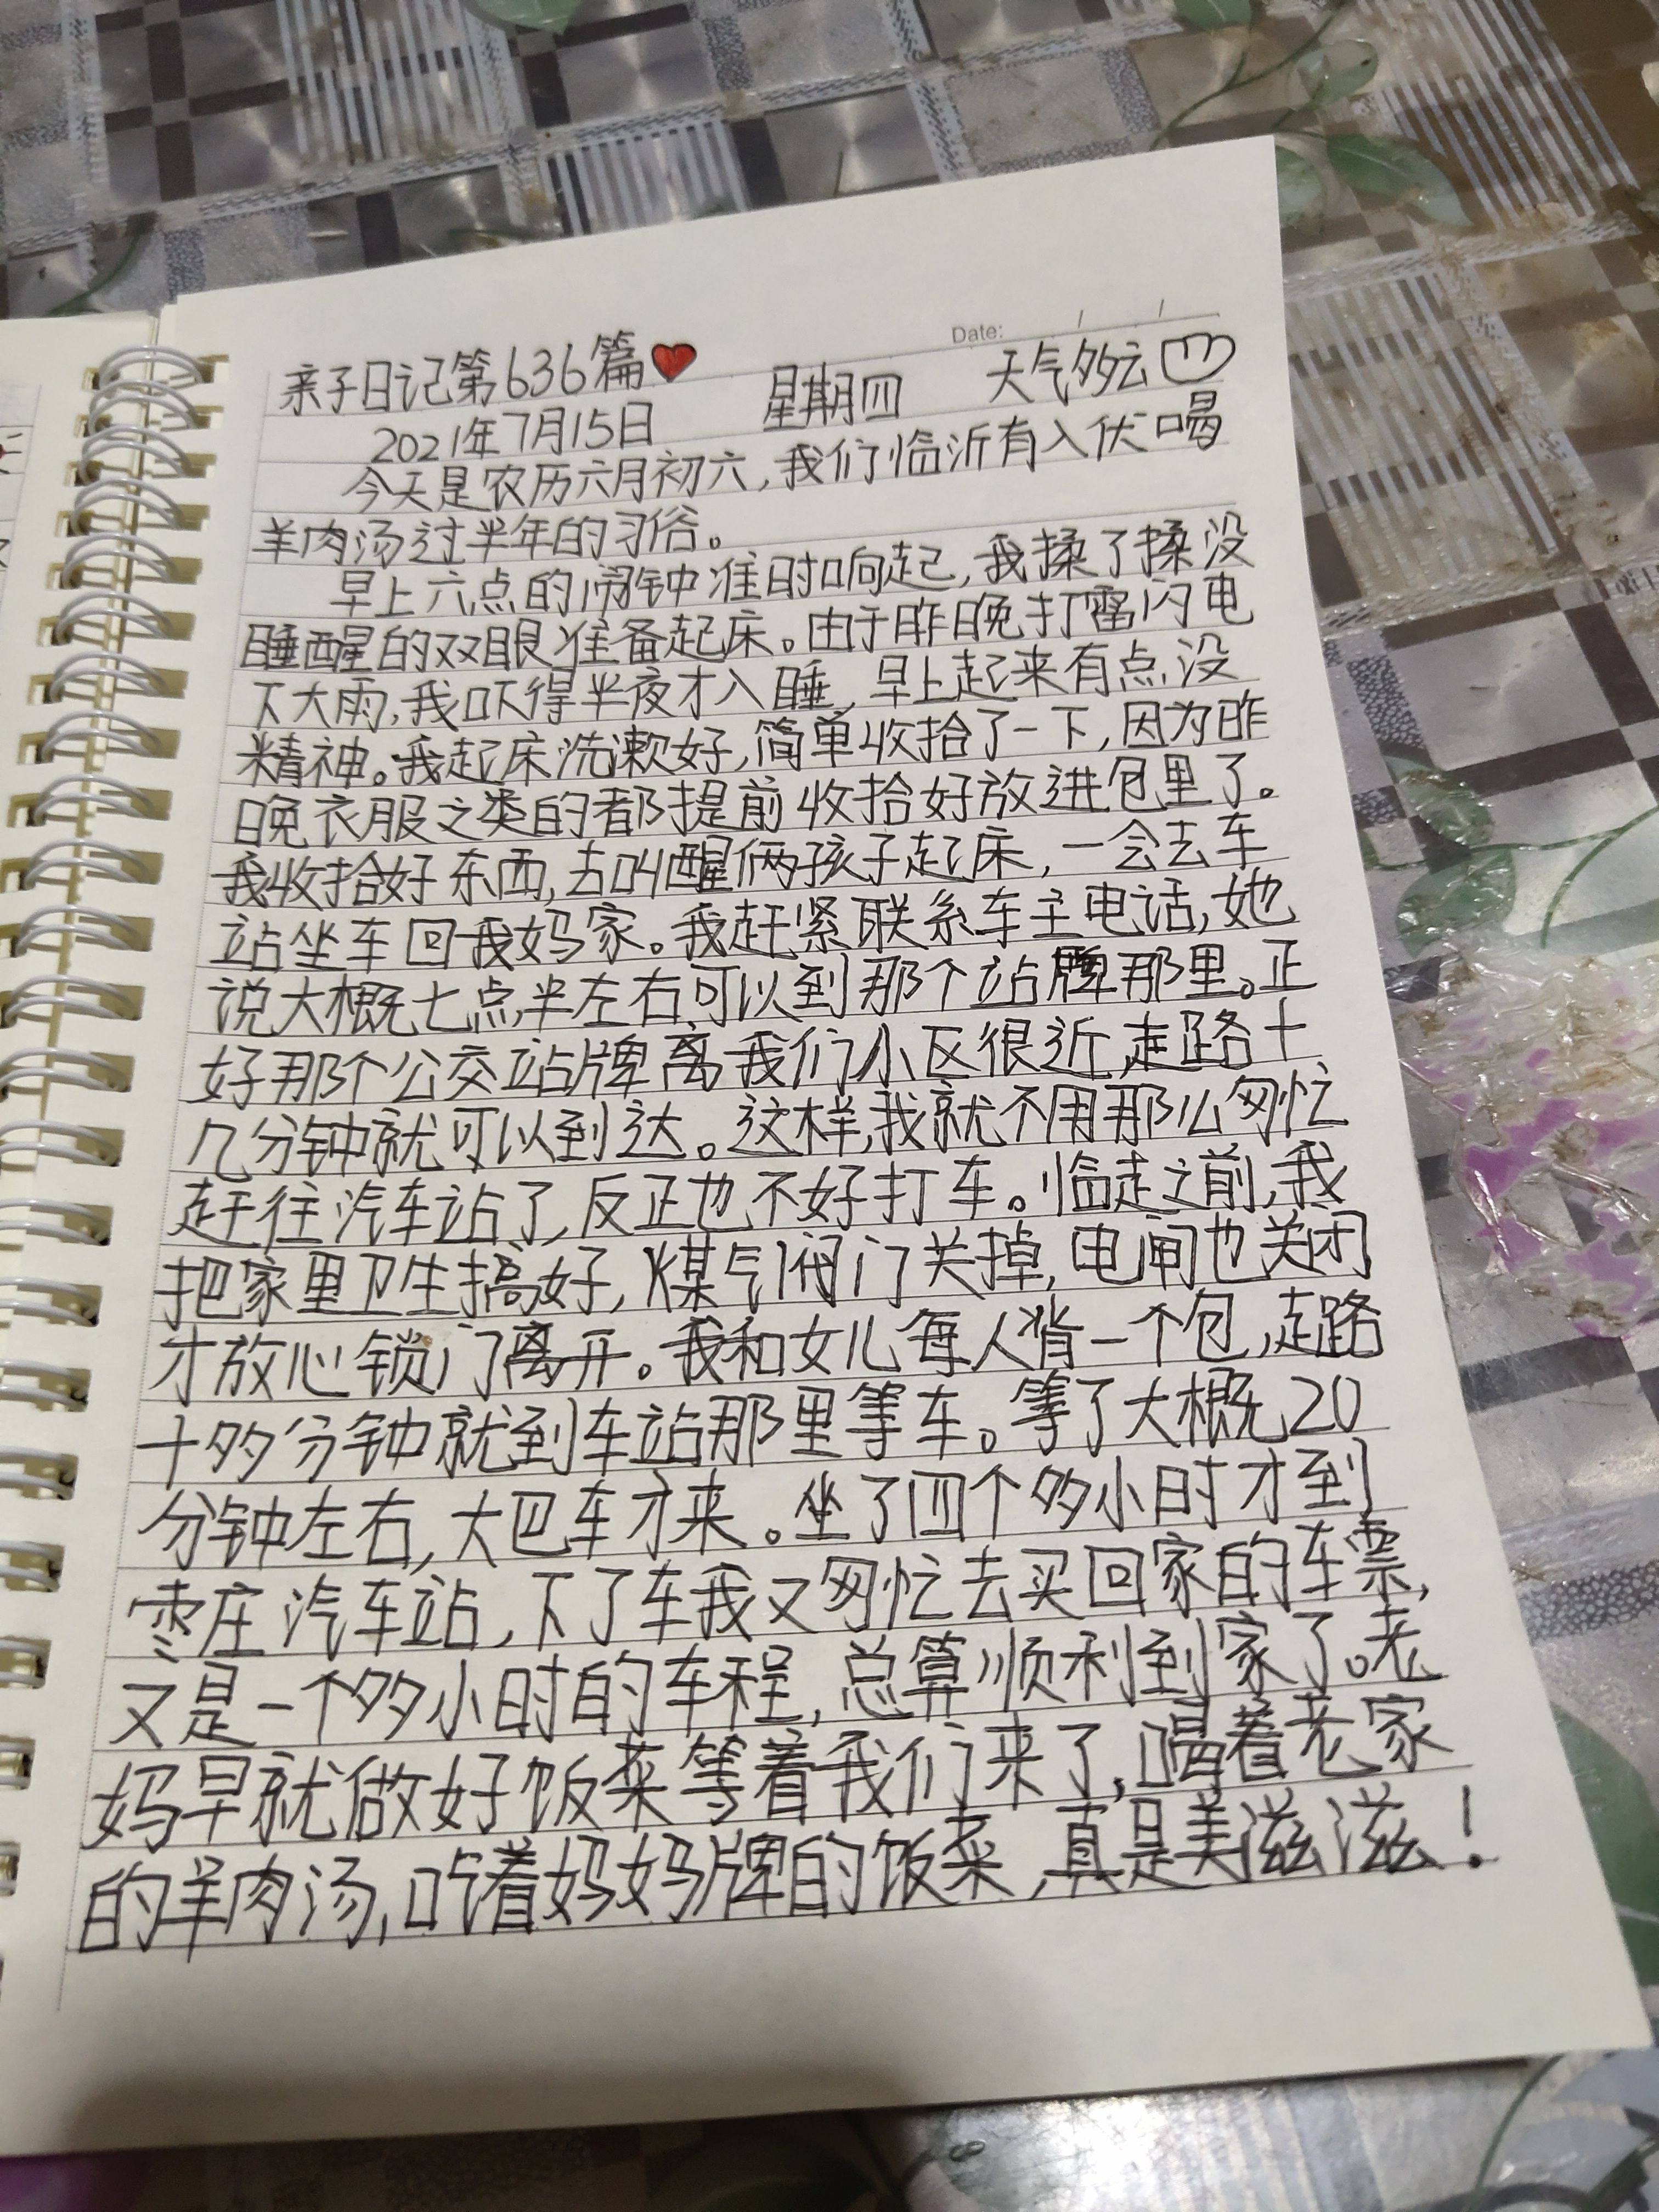 Date: / /
亲子日记第636篇
2021年7月15日 星期四 天气多云
今天是农历六月初六,我们临沂有入伏喝
羊肉汤过半年的习俗。
早上六点的闹钟准时响起,我揉了揉没
睡醒的双眼准备起床。由于昨晚打雷闪电
下大雨,我吓得半夜才入睡,早上起来有点没
精神。我起床洗漱好,简单收拾了一下,因为昨
晚衣服之类的都提前收拾好放进包里了。
我收拾好东西,去叫醒俩孩子起床,一会去车
站坐车回我妈家。我赶紧联系车主电话,她
说大概七点半左右可以到那个站牌那里。正
好那个公交站牌离我们小区很近,走路十
几分钟就可以到达。这样,我就不用那么匆忙
赶往汽车站了,反正也不好打车。临走之前,我
把家里卫生搞好,煤气阀门关掉,电闸也关闭
才放心锁门离开。我和女儿每人背一个包,走路
十多分钟就到车站那里等车。等了大概20
分钟左右,大巴车才来。坐了四个多小时才到
枣庄汽车站,下了车我又匆忙去买回家的车票,
又是一个多小时的车程,总算顺利到家了。老
妈早就做好饭菜等着我们来了,喝着老家
的羊肉汤,吃着妈妈牌的饭菜,真是美滋滋!